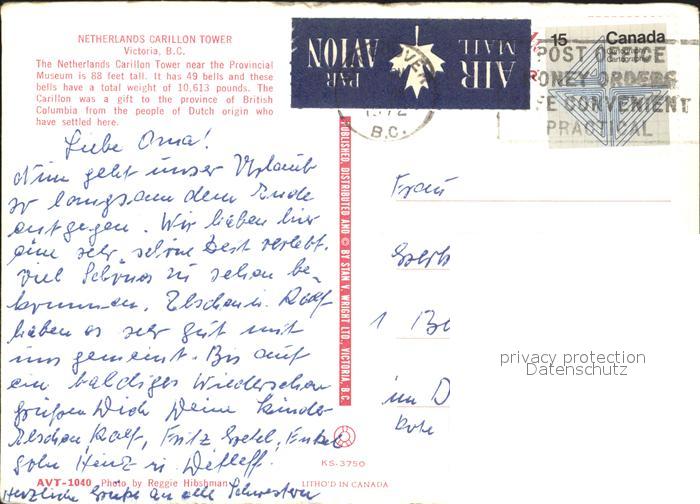 NETHERLANDS CARILLON TOWER
Victoria, B.C.
The Netherlands Carillon Tower near the Provincial
Museum is 88 feet tall. It has 49 bells and these
bells have a total weight of 10,613 pounds. The
Carillon was a gift to the province of British
Columbia from the people of Dutch origin who
have settled here.
Liebe Oma!
Nun geht unser Urlaub
so langsam dem Ende
entgegen. Wir haben hier
eine sehr schöne Zeit verlebt.
Viel Schönes zu sehen be-
kommen. Elschen u. Ralf
haben es sehr gut mit
uns gemeint. Bis auf
ein baldiges Wiedersehen
grüßen Dich Deine Kinder
Elschen, Ralf, Fritz, Enkel
Heinz u. Detleff.
Herzliche Grüße an alle Schwestern
AVT-1040 Photo by Reggie Hibshman
PUBLISHED, DISTRIBUTED AND © BY STAN V. WRIGHT LTD., VICTORIA, B.C.
KS-3750
LITHO'D IN CANADA
PAR AVION
AIR MAIL
1972
B.C.
15 Canada
Cartography
Cartographie
POST OFFICE
MONEY ORDERS
CONVENIENT
PRACTICAL
Frau
1 Be
im D
privacy protection
Datenschutz